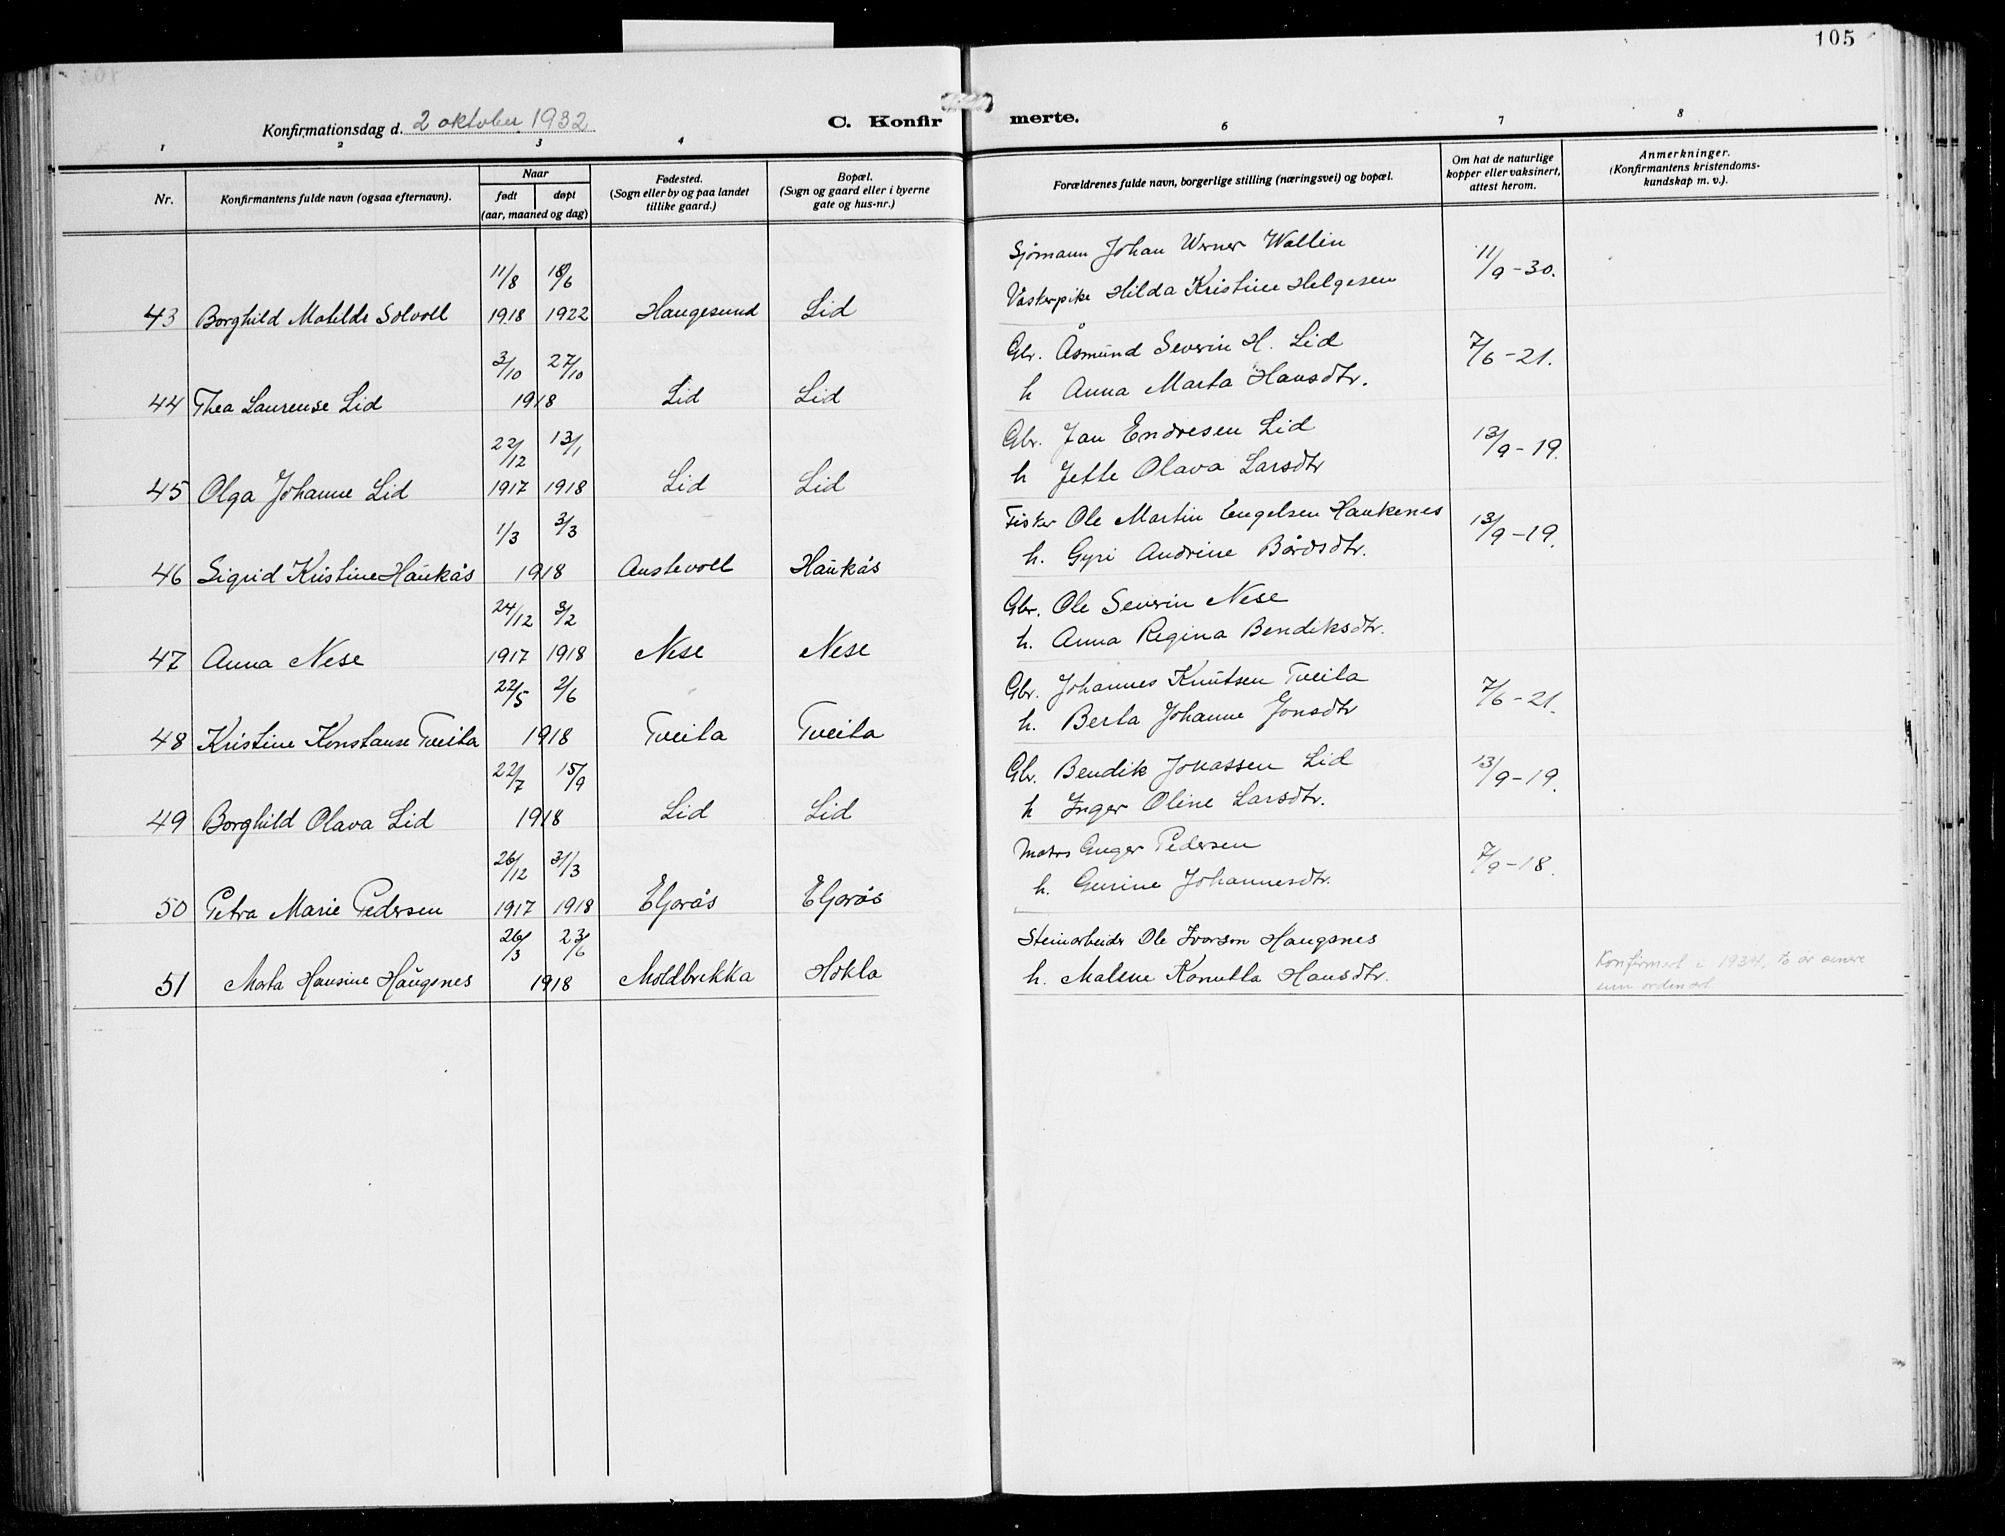 105
Konfirmationsdag d. 2 oktober 1932
C. Konfirmerte.
1 2 3 4 6 7 8
Nr. Konfirmantens fulde navn (ogsaa efternavn). Naar født døpt (aar, maaned og dag) Fødested. (Sogn eller by og paa landet tillike gaard.) Bopæl. (Sogn og gaard eller i byerne gate og hus-nr.) Forældrenes fulde navn, borgerlige stilling (næringsvei) og bopæl. Om hat de naturlige kopper eller vaksinert, attest herom. Anmerkninger. (Konfirmantens kristendoms-kundskap m. v.).
11/8 18/6 Sjømann Johan Werner Wallin 11/9-30.
43 Borghild Matilde Solvoll 1918 1922 Haugesund Lid Vaskerpike Hilda Kristine Helgesen
3/10 27/10 Gbr. Åsmund Severin H. Lid 7/6-21.
44 Thea Laurense Lid 1918 Lid Lid h Anna Marta Hansdtr.
22/12 13/1 Gbr. Jan Endresen Lid 13/9-19.
45 Olga Johanne Lid 1917 1918 Lid Lid h Jette Olava Larsdtr
1/3 3/3 Fisker Ole Martin Engelsen Haukenes 13/9-19.
46 Sigrid Kristine Haukås 1918 Austevoll Haukås h. Gyri Andrine Bårdsdtr.
24/12 3/2 Gbr. Ole Severin Nese
47 Anna Nese 1917 1918 Nese Nese h. Anna Regina Bendiksdtr.
22/5 2/6 Gbr. Johannes Knutsen Tveita 7/6-21.
48 Kristine Konstanse Tveita 1918 Tveita Tveita h. Berta Johanne Jonsdtr
22/7 15/9 Gbr. Bendik Jonassen Lid 13/9-19.
49 Borghild Olava Lid 1918 Lid Lid h Inger Oline Larsdtr.
26/12 31/3 Matros Pedersen 7/9-18.
50 Petra Marie Pedersen 1917 1918 Eljarås Eljarås h. Gurine Johannesdtr.
26/3 23/6 Steinarbeider Ole Ivarson Haugsnes
51 Marta Hansine Haugsnes 1918 Moldbrekka Hokla h. Malene Kornutta Hansdtr. Konfirmert i 1934, to år senere enn ordinært